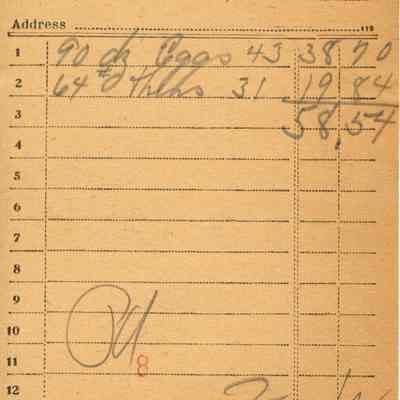 Address
1 90 dz Eggs 43 38 70
2 64 # 31 19 84
3 58.54
4
5
6
7
8
9
10 Pd
11 8
12